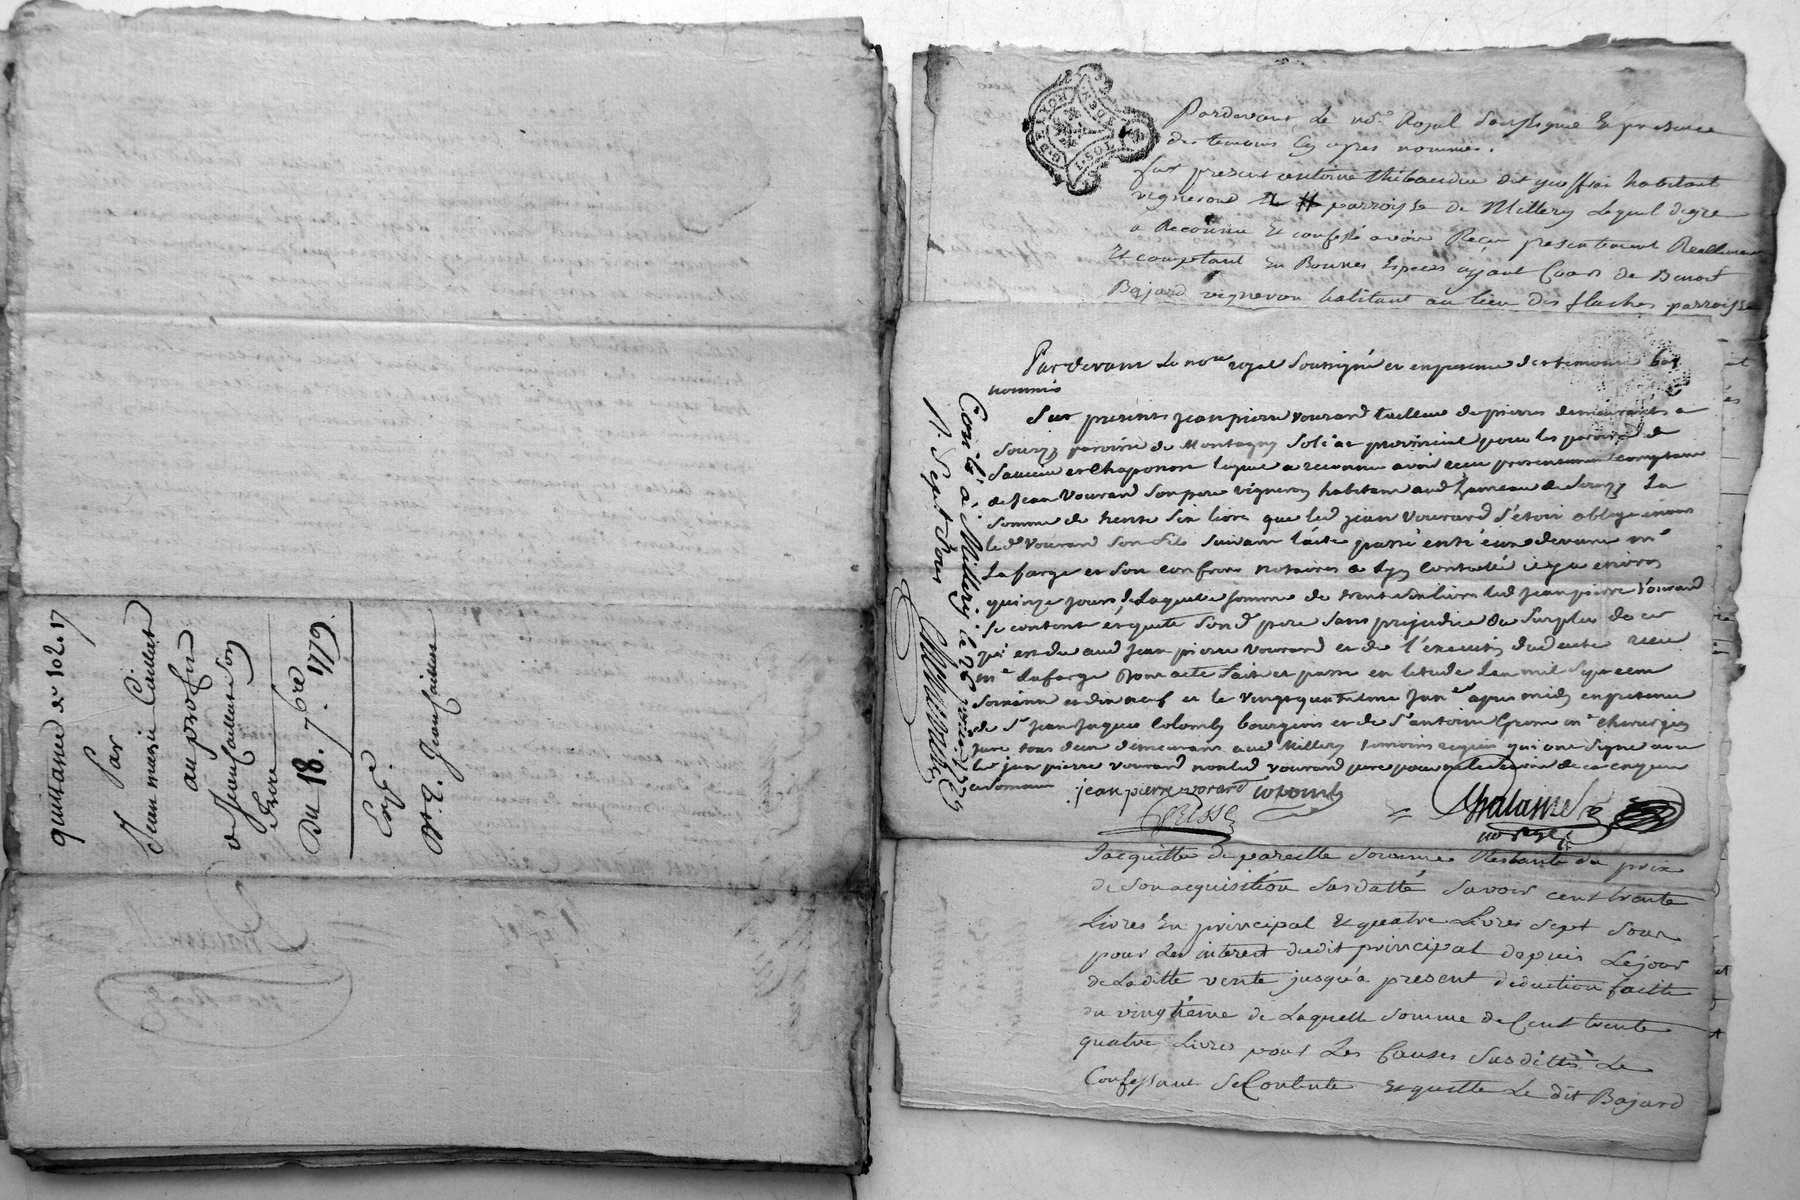 quittance de 102.17
par
Jean marie Caillat
au profit
de Jean Caillat son
frere
Du 18. 7.bre 1779.
Exp.
Jean Caillat
G.D.E LYON
1.SOL
Pardevant Le no.re Royal soussigné Et presence
des temoins Cy apres nommes.
fut present antoine thibaudier dit habitant
vigneron parroisse de Millery Lequel degre
a Reconnu Et confessé avoir Reçu presentement Reellement
Et comptant En Bonnes Especes ayant Cours de Benoit
Bajard vigneron habitant au lieu des flaches parroisse
Pardevant le no.re royal Soussigné et en presence des temoins bas
nommés
fut present jean pierre vourard tailleur de pierres demeurant a
Sourzy paroisse de Montagny Soldat provincial pour les paroisses de
Saucieu et Chaponost lequel a reconnu avoir recu presentement comptant
de Jean Vourard Son pere vigneron habitant aud hameau de Sourzy La
Somme de trente Six livres que led jean Vourard s'étoit obligé envers
led Vourard Son fils Suivant l'acte passé entre eux devant m.e
Lafarge et Son confrere notaires a Lyon Controllé il y a environ
quinze jours de Laquelle Somme de trente Six livres led jean pierre Vourard
Se contente et quitte Sond pere Sans prejudice du Surplus de ce
qui est du aud jean pierre vourard et de l'execution dud acte recu
m.e Lafarge Dont acte fait et passé en l'etude L'an mil Sept cent
Soixante et dix neuf et le vingt quatrieme Jan.er apres midy en presence
de S.r Jean Jaques Colomby bourgeois et de S.r antoine m.e chirurgien
juré tous deux demeurans aud Millery temoins requis qui ont Signé avec
led jean pierre vourard non led vourard pere pour ne le Savoir de ce enquis
et Sommé jean pierre vorard Colomb
not. Roy.
Con.lé à Millery le 26 janvier 1779
R. Sept Sous
Jacquitte de pareille Somme Restante du prix
de Son acquisition Susdatté Savoir cent trente
Livres En principal Et quatre Livres Sept Sous
pour Les interest dudit principal depuis Lejour
de Laditte vente jusqu'a present deduction faitte
du vingtieme de Laquelle Somme de Cent trente
quatre Livres pour Les Causes Susdittes Le
Confessant Se Contente Et quitte Le dit Bajard